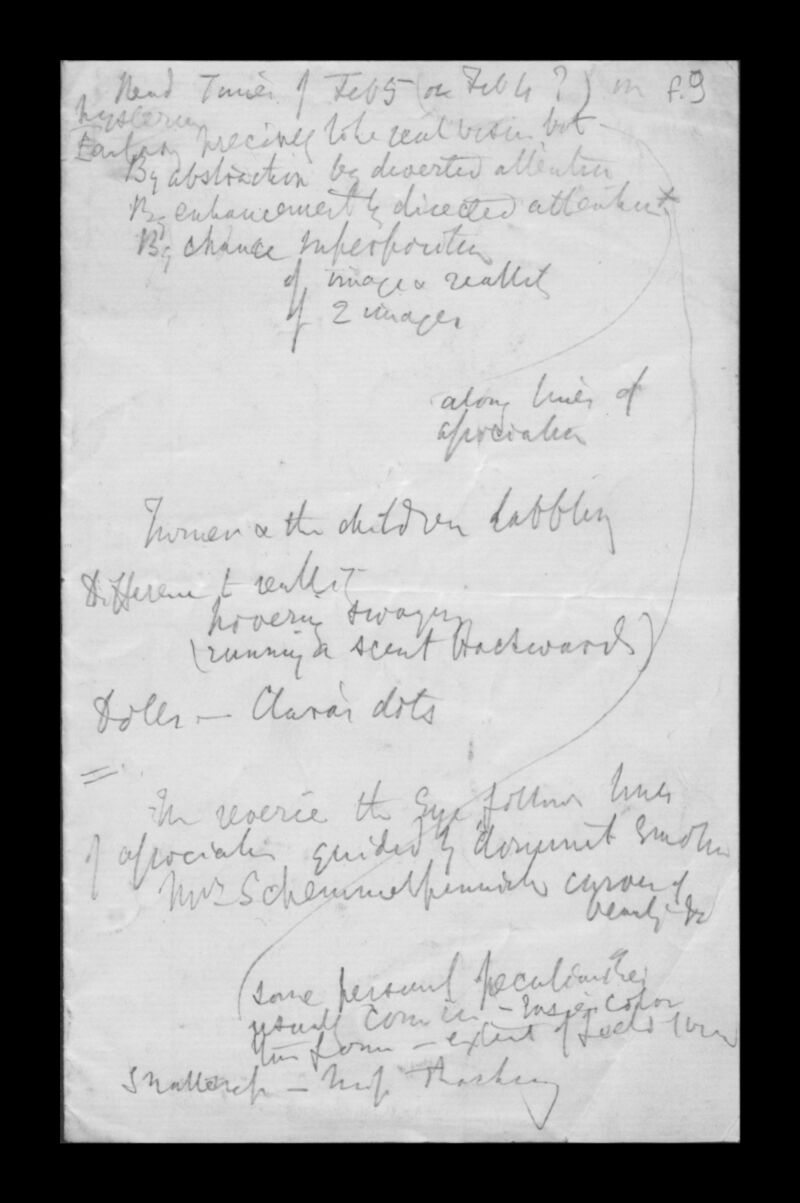 Read Times of Feb 5 (or Feb 4?) on f.9
hysteria
Fantasy precisely like real vision but
By abstraction by diverted attention
By enhancement by directed attention
By chance superposition
of image & reality
of 2 images
along lines of
association
Turner & the children dabbling
Difference to reality
hovering swaying
(running a scent backwards)
Dolls — Clara's dots
In reverie the Eye follows lines
of association guided by dominant Emotion
Mrs Schimmelpenninck curves of
beauty &c
some personal peculiarities
usually come in — color
form — extent of field
Miss